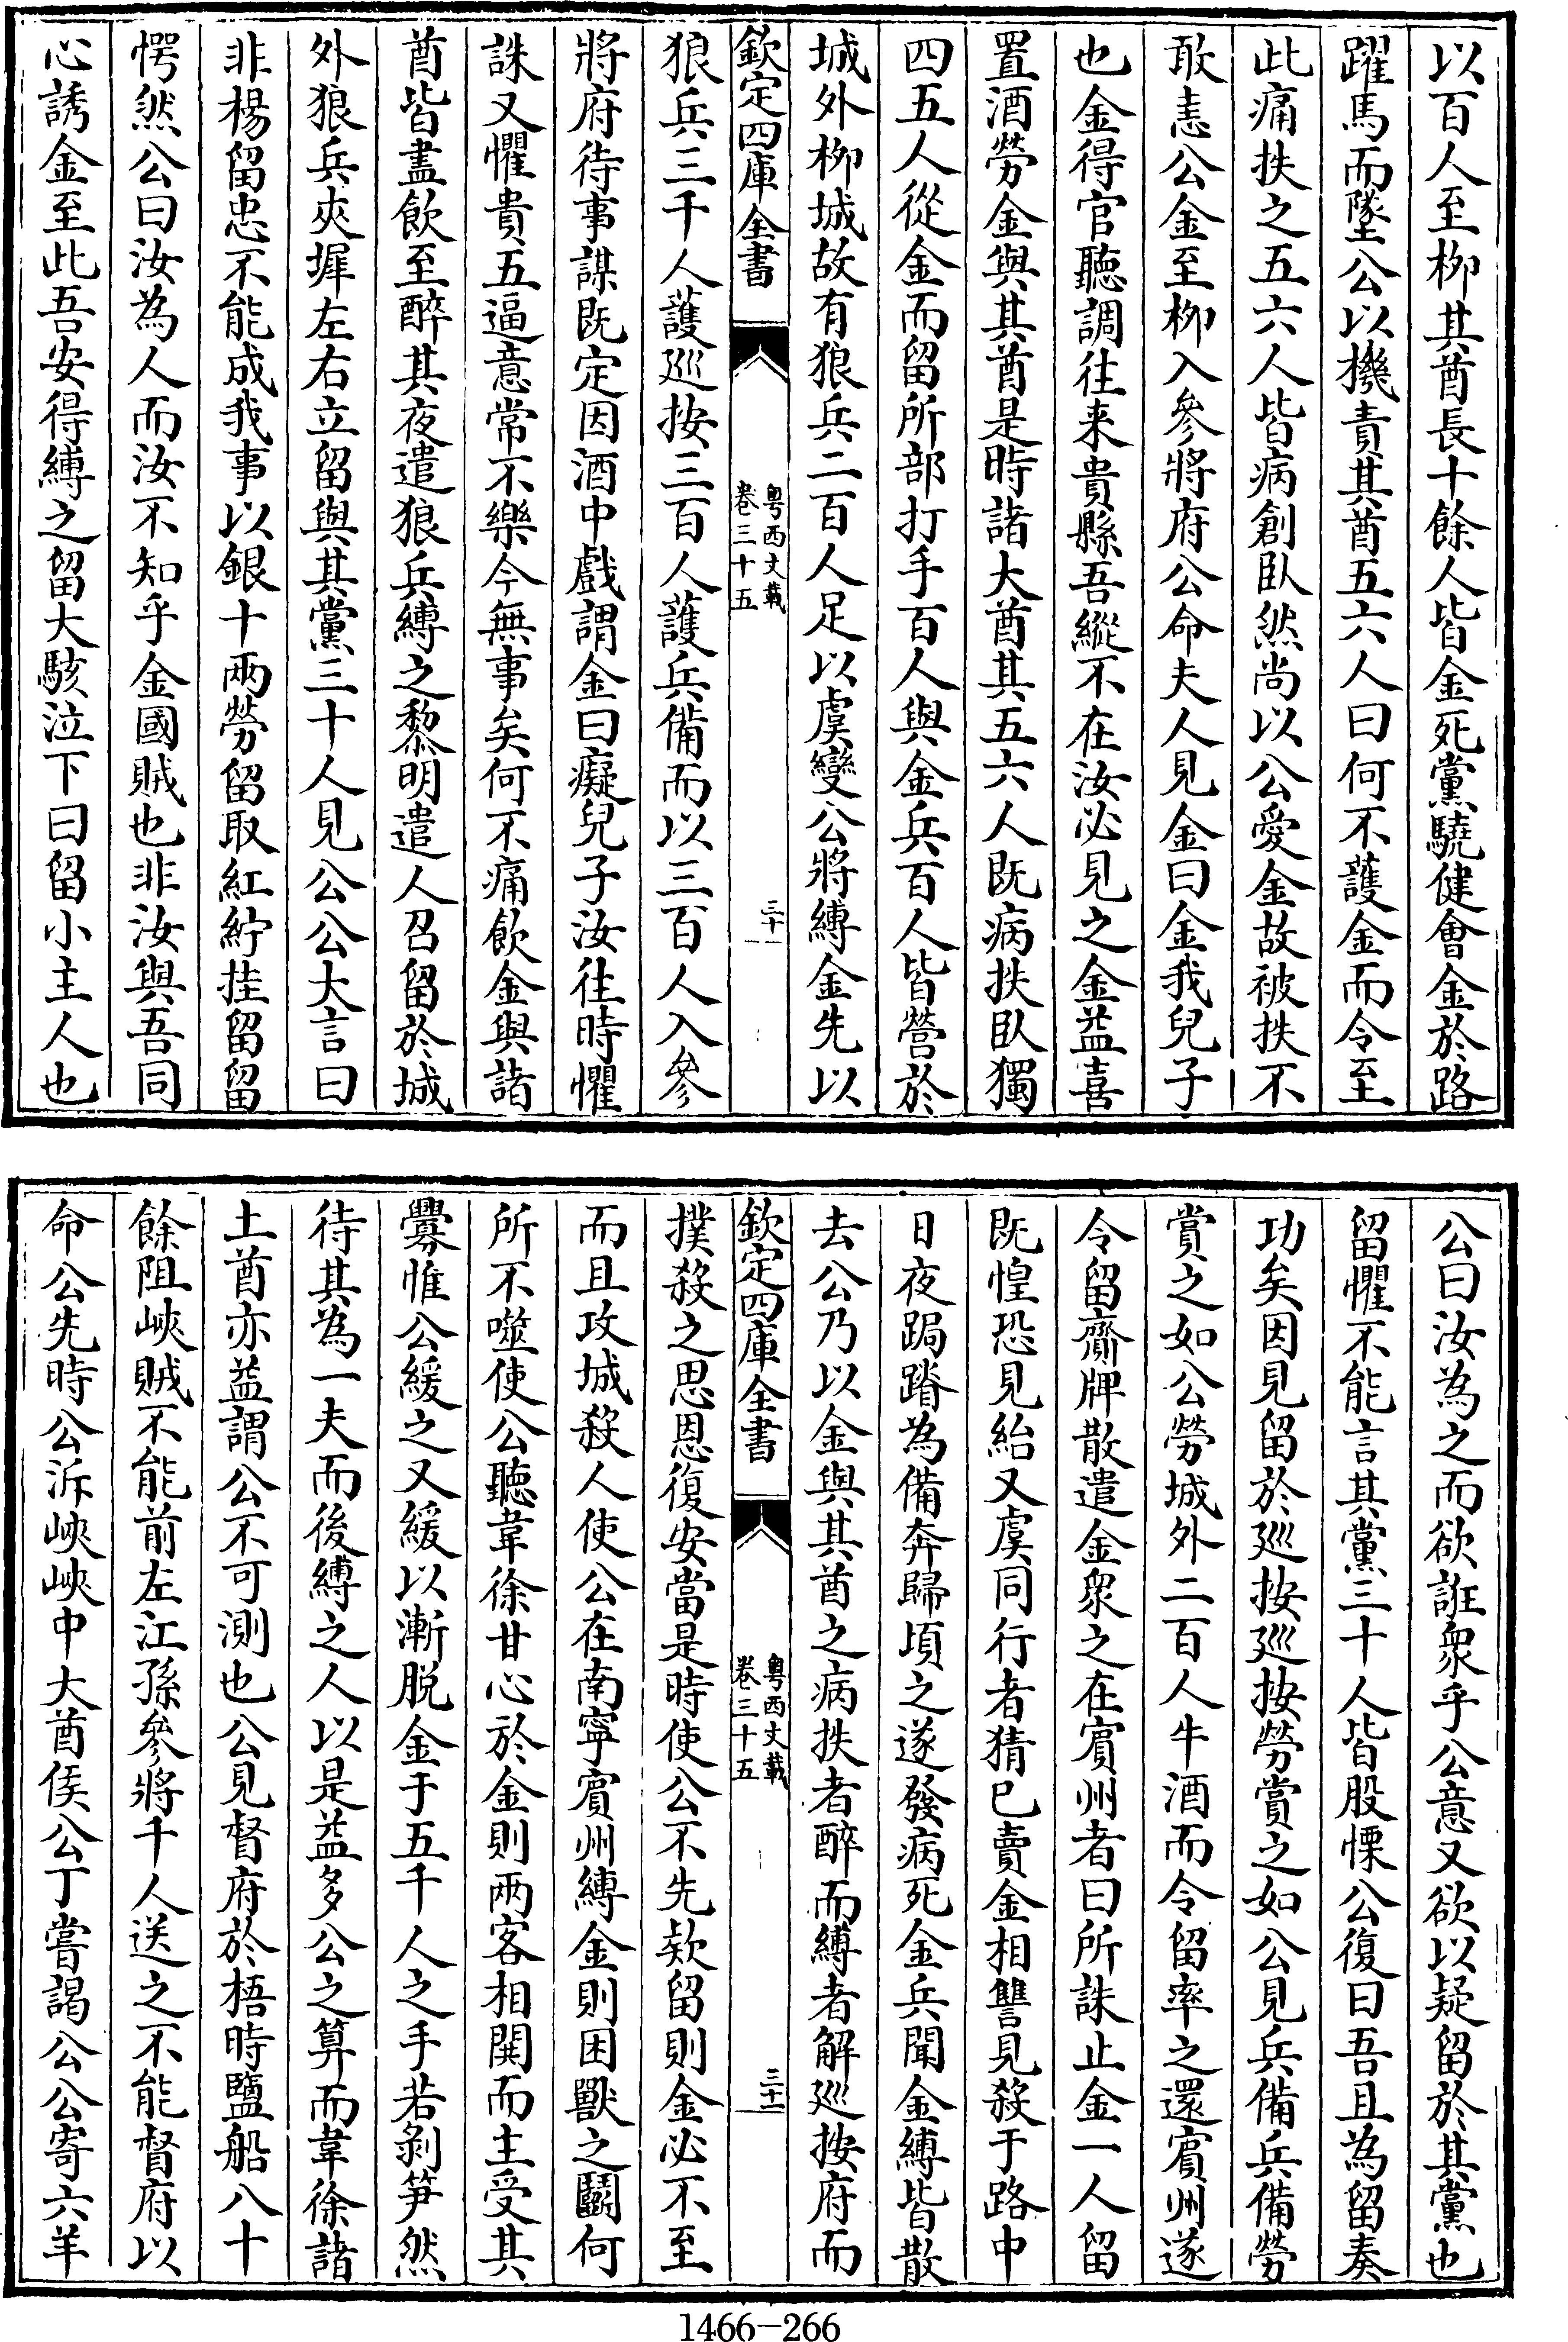 以百人至柳其酋長十餘人皆金死黨驍健會金於路
躍馬而墜公以機責其酋五六人曰何不護金而令至
此痛抶之五六人皆病創臥然尚以公愛金故被抶不
敢恚公金至柳入參將府公命夫人見金曰金我兒子
也金得官聽調往来貴縣吾縱不在汝必見之金益喜
置酒勞金與其酋是時諸大酋其五六人既病抶臥獨
四五人從金而留所部打手百人與金兵百人皆營於
城外柳城故有狼兵二百人足以虞變公將縛金先以
欽定四庫全書
粤西文載
卷三十五
三十
狼兵三千人護巡按三百人護兵備而以三百人入參
將府待事謀既定因酒中戲謂金曰癡兒子汝往時懼
誅又懼貴五逼意常不樂今無事矣何不痛飲金與諸
酋皆盡飲至醉其夜遣狼兵縛之黎明遣人召留於城
外狼兵夾墀左右立留與其黨三十人見公公大言曰
非楊留忠不能成我事以銀十兩勞留取紅紵挂留留
愕然公曰汝為人而汝不知乎金國賊也非汝與吾同
心誘金至此吾安得縛之留大駭泣下曰留小主人也
公曰汝為之而欲誑衆乎公意又欲以疑留於其黨也
留懼不能言其黨三十人皆股慄公復曰吾且為留奏
功矣因見留於巡按巡按勞賞之如公見兵備兵備勞
賞之如公勞城外二百人牛酒而令留率之還賓州遂
令留齎牌散遣金衆之在賓州者曰所誅止金一人留
既惶恐見紿又虞同行者猜已賣金相讐見殺于路中
日夜跼蹐為備奔歸頃之遂發病死金兵聞金縛皆散
去公乃以金與其酋之病抶者醉而縛者解巡按府而
欽定四庫全書
粤西文載
卷三十五
三十一
撲殺之思恩復安當是時使公不先欵留則金必不至
而且攻城殺人使公在南寧賓州縛金則困獸之鬭何
所不噬使公聽韋徐甘心於金則兩客相鬨而主受其
釁惟公緩之又緩以漸脱金于五千人之手若剝笋然
待其為一夫而後縛之人以是益多公之算而韋徐諸
土酋亦益謂公不可測也公見督府於梧時鹽船八十
餘阻峽賊不能前左江孫參將千人送之不能督府以
命公先時公泝峽峽中大酋侯公丁嘗謁公公寄六羊